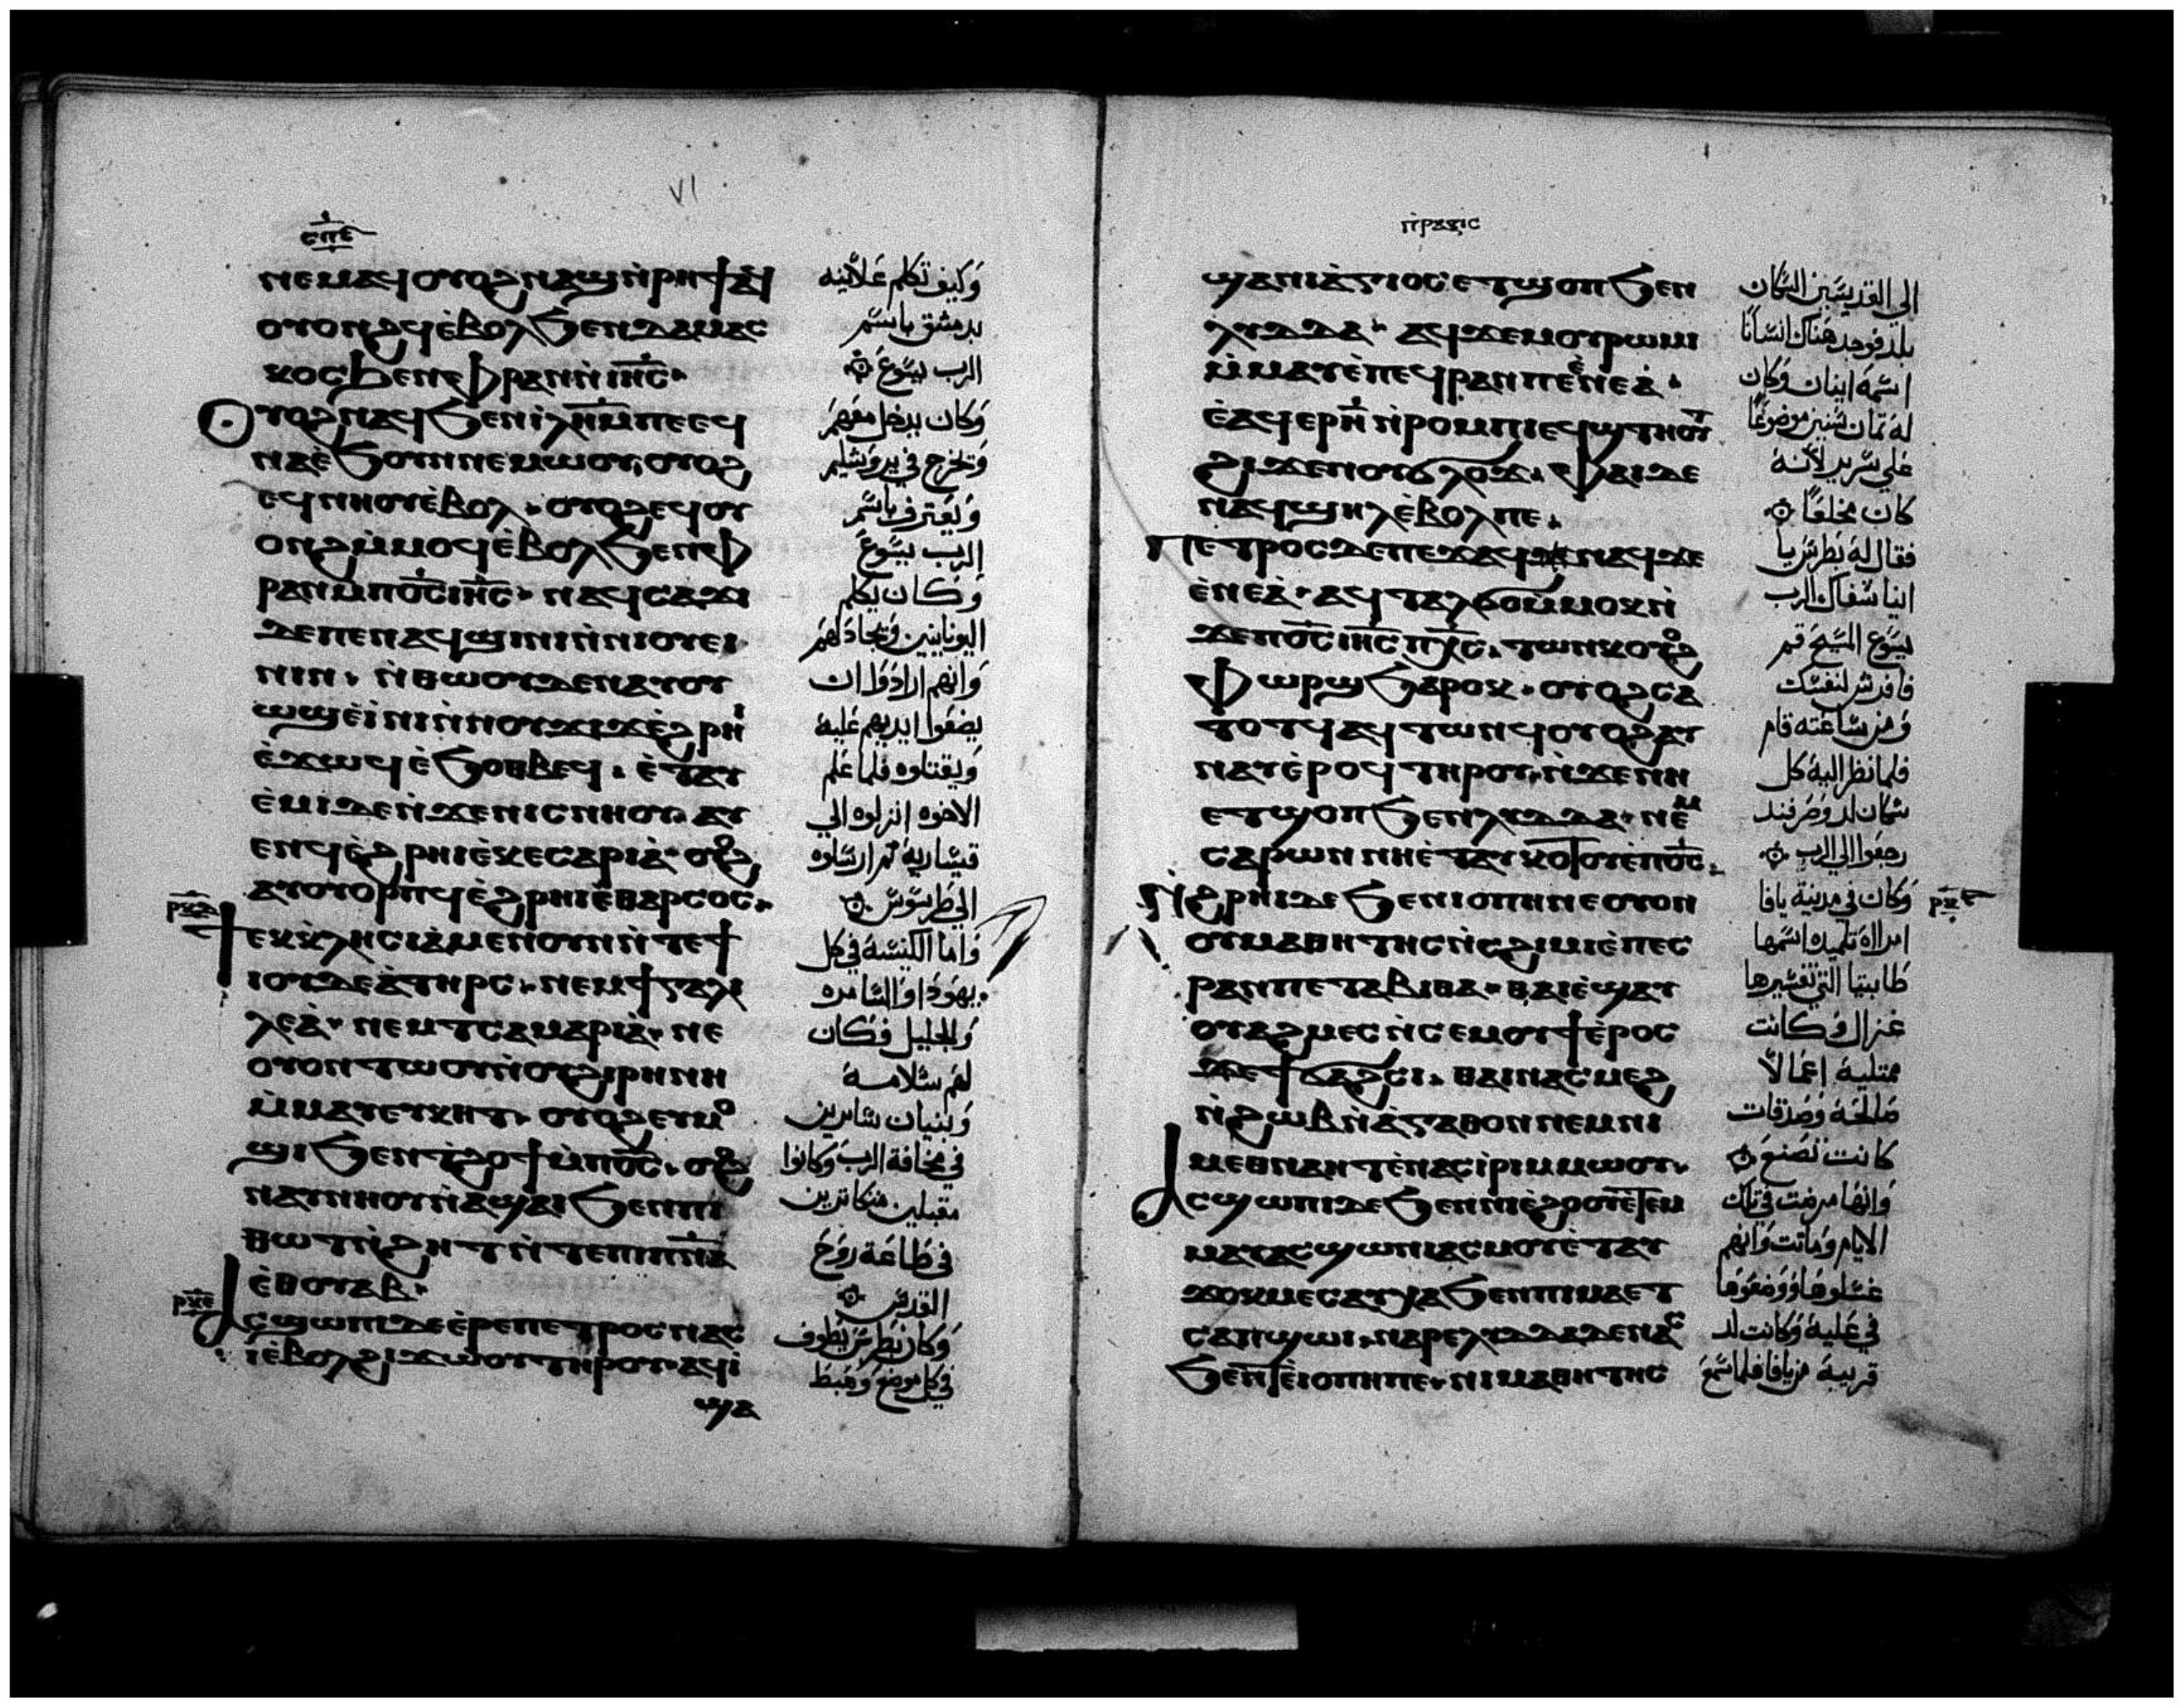 ⲥⲡⲉ
ⲛⲉⲙⲁϥ ⲟⲩⲟϩ ⲛⲁϣ ⲛ̀ⲣⲏϯ ⲁϥ
ⲟⲩⲟⲛϩϥ ⲉ̀ⲃⲟⲗ ϧⲉⲛ ⲇⲁⲙⲁⲥ
ⲕⲟⲥ ϧⲉⲛ ⲫⲣⲁⲛ ⲛ̀ ⲓⲏ̅ⲥ̅.
ⲟⲩⲟϩ ⲛⲁϥ ϧⲉⲛ ⲓ̀ⲗ̅ⲏ̅ⲙ̅ ⲡⲉ ⲉϥ
ⲛⲁⲉ̀ ϧⲟⲩⲛ ⲛⲉⲙⲱⲟⲩ, ⲟⲩⲟϩ
ⲉϥⲛⲏⲟⲩ ⲉ̀ⲃⲟⲗ. ⲟⲩⲟϩ ⲉϥⲟⲩ
ⲟⲛϩ ⲙ̀ⲙⲟϥ ⲉ̀ⲃⲟⲗ ϧⲉⲛ ⲫ
ⲣⲁⲛ ⲙ̀ⲡⲟ̅ⲥ̅ ⲓⲏ̅ⲥ̅. ⲛⲁϥⲥⲁϫⲓ
ⲇⲉ ⲡⲉ ⲛⲁϥϣⲓⲛⲓ ⲛ̀ⲛⲓⲟⲩⲉⲓ
ⲛⲓⲛ. ⲛ̀ⲑⲱⲟⲩ ⲇⲉ ⲛⲁⲩⲟⲩ
ⲱϣ ⲉ̀ⲓ̀ⲛⲓ ⲛ̀ⲛⲟⲩϫⲓϫ ⲉ̀ϩⲣⲏⲓ
ⲉ̀ϫⲱϥ ⲉ̀ ϧⲟⲑⲃⲉϥ. ⲉ̀ⲧⲁⲩ
ⲉ̀ⲙⲓ ⲇⲉ ⲛ̀ϫⲉ ⲛⲓⲥⲛⲏⲟⲩ. ⲁⲩ
ⲉⲛϥ ⲉ̀ϩⲣⲏⲓ ⲉ̀ⲕⲉⲥⲁⲣⲓⲁ̀. ⲟⲩⲟϩ
ⲁⲩⲟⲩⲟⲣⲡϥ ⲉ̀ϩⲣⲏⲓ ⲉ̀ⲑⲁⲣⲥⲟⲥ.
ⲣⲝⲇ
ϯⲉⲕⲕⲗⲏⲥⲓⲁ̀ ⲙⲉⲛ ⲟⲩⲛ ⲛ̀ⲧⲉ ϯ
ⲓⲟⲩⲇⲉⲁ̀ ⲧⲏⲣⲥ. ⲛⲉⲙ ϯⲅⲁⲗⲓ
ⲗⲉⲁ̀. ⲛⲉⲙ ⲧⲥⲁⲙⲁⲣⲓⲁ̀. ⲛⲉ
ⲟⲩⲟⲛⲧⲱⲟⲩ ⲛ̀ⲟⲩϩⲓⲣⲏⲛⲏ
ⲙ̀ⲙⲁⲩ ⲉⲩⲕⲏⲧ. ⲟⲩⲟϩ ⲉⲩⲙⲟ
ϣⲓ ϧⲉⲛ ⲧ̀ϩⲟϯ ⲙ̀ⲡⲟ̅ⲥ̅. ⲟⲩⲟϩ
ⲛⲁⲩⲛⲏⲟⲩ ⲛ̀ⲁϣⲁⲓ ϧⲉⲛ ⲡⲓ
ⲑⲱⲧ ⲛ̀ϩⲏⲧ ⲛ̀ⲧⲉ ⲡⲓⲡ̅ⲛ̅ⲁ̅
ⲉ̀ⲑⲟⲩⲁⲃ.
ⲣⲝⲉ
ⲁⲥϣⲱⲡⲓ ⲇⲉ ⲉ̀ⲣⲉ ⲡⲉⲧⲣⲟⲥ ⲛⲁⲥ
ⲓ̀ ⲉ̀ⲃⲟⲗ ϩⲓϫⲱⲟⲩ ⲧⲏⲣⲟⲩ. ⲁϥⲓ̀
ϣⲁ
وَكيف تكلم علانيه
بدمشق باسم
الرب يسوع
وَكان يدخل معَهم
وَيخرج في يروشليم
وَيَعترف باسم
الرب يسوعَ
وَكان يكلم
اليونانيين وَيجادلهم
وَانهم ارادوا ان
يضعوا ايديهم عَليهُ
وَيقتلوه فلما عَلم
الاخوه انزلوه الي
قيساريه ثم ارسلوه
الي طرسوس
وَاما الكنيسه في كل
يهوداوالسامره
وَالجليل فكان
لهم سلامه
وَبنيان سايرين
في مخافة الرب وَكانوا
مقبلين متكاثرين
في طاعَة روح
القدس
وَكان بطرس يَطوف
في كل موضع وهَبط
ⲡⲣⲁⲝⲓⲥ
ϣⲁ ⲛⲓⲁ̀ⲅⲓⲟⲥ ⲉⲧϣⲟⲡ ϧⲉⲛ
ⲗⲩⲇⲇⲁ. ⲁϥϫⲉⲙ ⲟⲩⲣⲱⲙⲓ
ⲙ̀ⲙⲁⲩ ⲉ̀ⲡⲉϥⲣⲁⲛ ⲡⲉ ⲉ̀ⲛⲉⲁ̀.
ⲉ̀ⲁϥⲉⲣ ⲏ̅ ⲛ̀ⲣⲟⲙⲡⲓ ⲉϥϣⲧⲏⲟⲩⲧ
ϩⲓϫⲉⲛ ⲟⲩϭⲗⲟϫ. ⲫⲁⲓ ⲇⲉ
ⲛⲁϥϣⲏⲗ ⲉ̀ⲃⲟⲗ ⲡⲉ.
ⲡⲉⲧⲣⲟⲥ ⲇⲉ ⲡⲉϫⲁϥ ⲛⲁϥ ϫⲉ
ⲉ̀ⲛⲉⲁ̀. ⲁϥⲧⲁⲗϭⲟ ⲙ̀ⲙⲟⲕ ⲛ̀
ϫⲉ ⲡⲟ̅ⲥ̅ ⲓⲏ̅ⲥ̅ ⲡⲭ̅ⲥ̅. ⲧⲱⲛⲕ ⲟⲩⲟϩ
ⲫⲱⲣϣ ϧⲁⲣⲟⲕ. ⲟⲩⲟϩ ⲥⲁ
ⲧⲟⲧϥ ⲁϥⲧⲱⲛϥ ⲟⲩⲟϩ ⲁⲩ
ⲛⲁⲩ ⲉ̀ⲣⲟϥ ⲧⲏⲣⲟⲩ. ⲛ̀ϫⲉ ⲛⲏ
ⲉⲧϣⲟⲡ ϧⲉⲛ ⲗⲩⲇⲇⲁ. ⲛⲉⲙ
ⲥⲁⲣⲱⲛ ⲛⲏ ⲉ̀ⲧⲁⲩⲕⲟⲧⲟⲩ ⲉ̀ⲡⲟ̅ⲥ̅.
ⲛ̀ϩⲣⲏⲓ ⲇⲉ ϧⲉⲛ ⲓⲟⲡⲏ ⲛⲉ ⲟⲩⲟⲛ
ⲟⲩⲙⲁⲑⲏⲧⲏⲥ ⲛ̀ⲥϩⲓⲙⲓ ⲉ̀ⲡⲉⲥ
ⲣⲁⲛ ⲡⲉ ⲧⲁⲃⲓⲑⲁ. ⲑⲁⲓ ⲉ̀ϣⲁⲩ
ⲟⲩⲁϩⲙⲉⲥ ⲛ̀ⲥⲉⲙⲟⲩϯ ⲉ̀ⲣⲟⲥ
ϫⲉ ϯϭⲁϩⲥⲓ. ⲑⲁⲓ ⲛⲁⲥⲙⲉϩ
ⲛ̀ϩⲱⲃ ⲛ̀ⲁ̀ⲅⲁⲑⲟⲛ ⲛⲉⲙ ⲛⲓ
ⲙⲉⲑⲛⲁⲏⲧ ⲉ̀ⲛⲁⲥⲓ̀ⲣⲓ ⲙ̀ⲙⲱⲟⲩ.
ⲁⲥϣⲱⲡⲓ ⲇⲉ ϧⲉⲛ ⲛⲓⲉ̀ϩⲟⲟⲩ ⲉ̀ⲧⲉⲙ
ⲙⲁⲩ ⲁⲥϣⲱⲛⲓ ⲁⲥⲙⲟⲩ ⲉ̀ⲧⲁⲩ
ϫⲟⲕⲙⲉⲥ ⲁⲩⲭⲁⲥ ϧⲉⲛ ⲡⲓⲙⲁ ⲉⲧ
ⲥⲁⲡϣⲱⲓ. ⲛⲁⲣⲉ ⲗⲩⲇⲇⲁ ⲇⲉ
ϧⲉⲛⲧ ⲉ̀ⲓⲟⲡⲏ ⲡⲉ. ⲛⲓⲙⲁⲑⲏⲧⲏⲥ
الي القديسين السكان
بلد فوجد هَناك انسانا
اسمهَ اينيان وَكان
لهَ ثمان سنين موضوعَا
عَلي سرير لانهُ
كان مخلعَا
فقال لهُ بطرس يا
شفاك الرب
يسوع المسيح قم
فافرش لنفسك
وَمن ساعَته قام
فلما نظر اليهُ كل
سكان لد
رجعَوا الي الرب
وَكان في مدينة يافا
امراة تلميده اسمها
طابيتا التي تفسيرها
غزال وَكانت
ممتليهُ اعمالاً
صالحهُ وَصدقات
كانت تصنع
وَانها مرضت في تلك
الايام وَماتت وَانهم
غَسلوها ووضعَوها
في عَليهُ وَكانت لد
قريبهَ من يافا فلما سمعَ